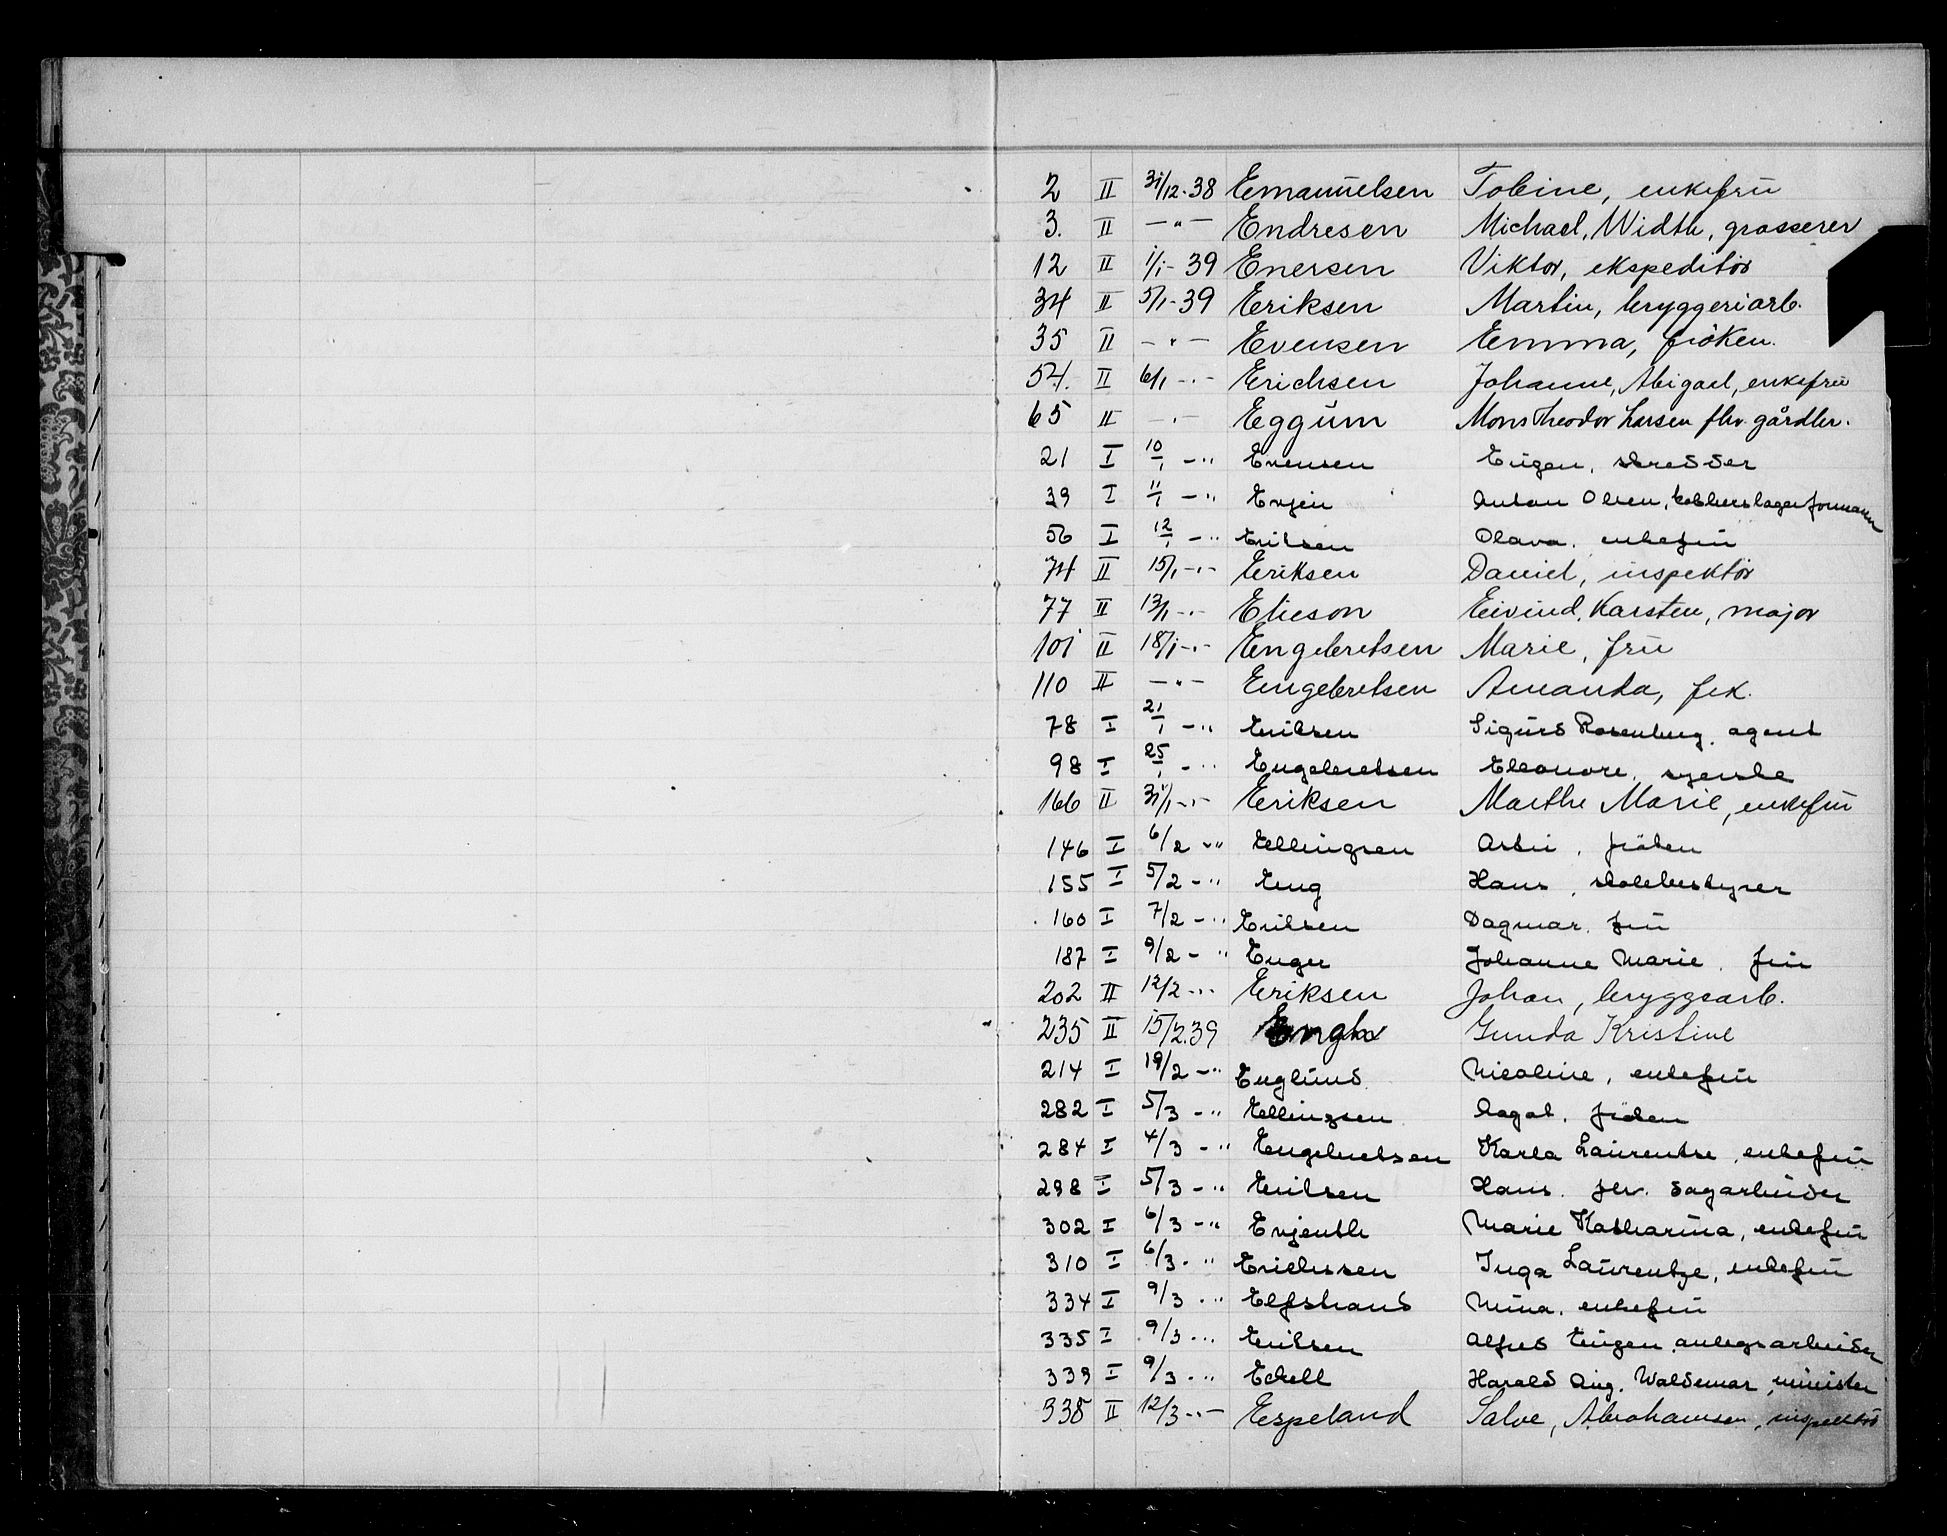 2 II 31/12-38 Emanuelsen Tobine, enkefrü
3. II —"— Endresen Michael, Width, grosserer
12 II 1/1-39 Enersen Viktor, ekspeditör
34 II 5/1-39 Eriksen Martin, bryggeriarb.
35 II —"— Evensen Emma, fröken.
54. II 6/1 -"- Erichsen Johanne, Abigael, enkefrü
65 II -"- Eggüm Mons Theodor Larsen fhv. gårdbr.
21 I 10/1 -" Evensen Eügen, skredder
39 I 11/1 -" Evjen Anton Olsen, kobberslagerformann
56 I 12/1 -" Eriksen Olava, enkefrü
74 II 15/1 -"- Eriksen Daniel, inspektör
77 II 13/1 -"- Elieson Eivind, Karsten, major
101 II 18/1 -"- Engebretsen Marie, frü
110 II —"— Engebretsen Amanda, frk.
78 I 21/1 -" Eriksen Sigürd Rosenberg, agent
98 I 25/1 -" Engebretsen Eleonore, syerske
166 II 31/1 -"- Eriksen Marthe Marie, enkefrü
146 I 6/2 -" Ellingsen fröken
155 I 5/2 -" Eng Hans, stallbestyrer
160 I 7/2 -" Eriksen Dagmar, frü
187 I 9/2 -" Enger Johanne Marie, frü
202 II 12/2 -"- Eriksen Johan, bryggearb.
235 II 15/2.39 Gunda Kristine
214 I 19/2 -" Englünd Nicoline, enkefrü
282 I 5/3 -" Ellingsen Aagot, fröken
284 I 4/3 -" Engebretsen Karla Laürentse, enkefrü
298 I 5/3 -" Eriksen Hans, fhv. sagarbeider
302 I 6/3 -" Evjenth Marie Katharina, enkefrü
310 I 6/3 -" Erichssen Inga Laürentze, enkefrü
334 I 9/3 -" Elfstrand Mina, enkefrü
335 I 9/3 -" Eriksen Alfred Eügen, anlegsarbeider
339 I 9/3 -" Eckell Harald Aüg. Waldemar, minister
338 II 12/3 -"- Espeland Salve, Abrahamsen, inspektör